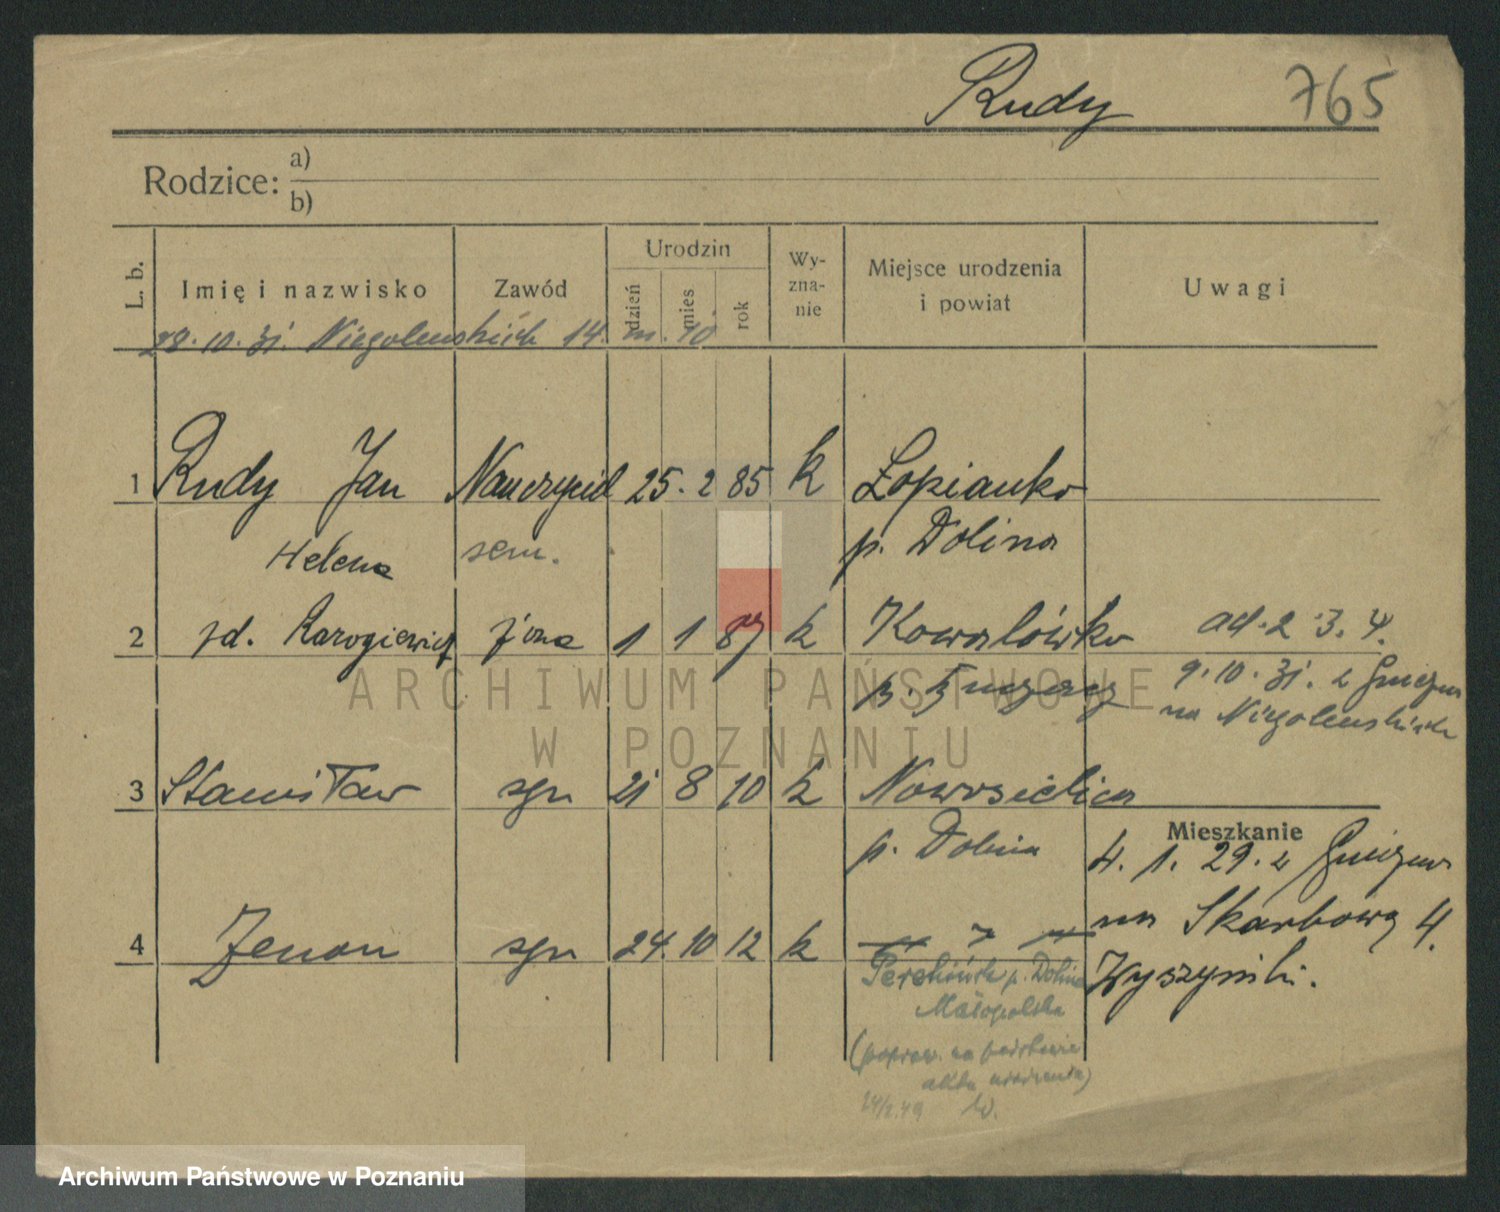 Rudy 765
Rodzice: a)
b)
L. b. Imię i nazwisko Zawód Urodzin dzień mies rok Wy-zna-nie Miejsce urodzenia i powiat Uwagi
28.10.31. Niegolewskich 14. m. 10
1 Rudy Jan Nauczyciel 25. 2 85 k Łopianko
Helena sem. p. Dolina
2 żona 1 1 87 k Kowalówka ad. 2 3. 4.
9.10.31. z Gniezna
na Niegolewskich
3 Stanisław syn 21 8 10 k Nowosielica
p. Dolina
Mieszkanie
4. 1. 29. z Gniezna
na Skarbową 4.
4 Zenon syn 24. 10 12 k
Perehińsk p. Dolina
Małopolska
(popraw. na podstawie
aktu urodzenia)
W.
ARCHIWUM PAŃSTWOWE
W POZNANIU
Archiwum Państwowe w Poznaniu